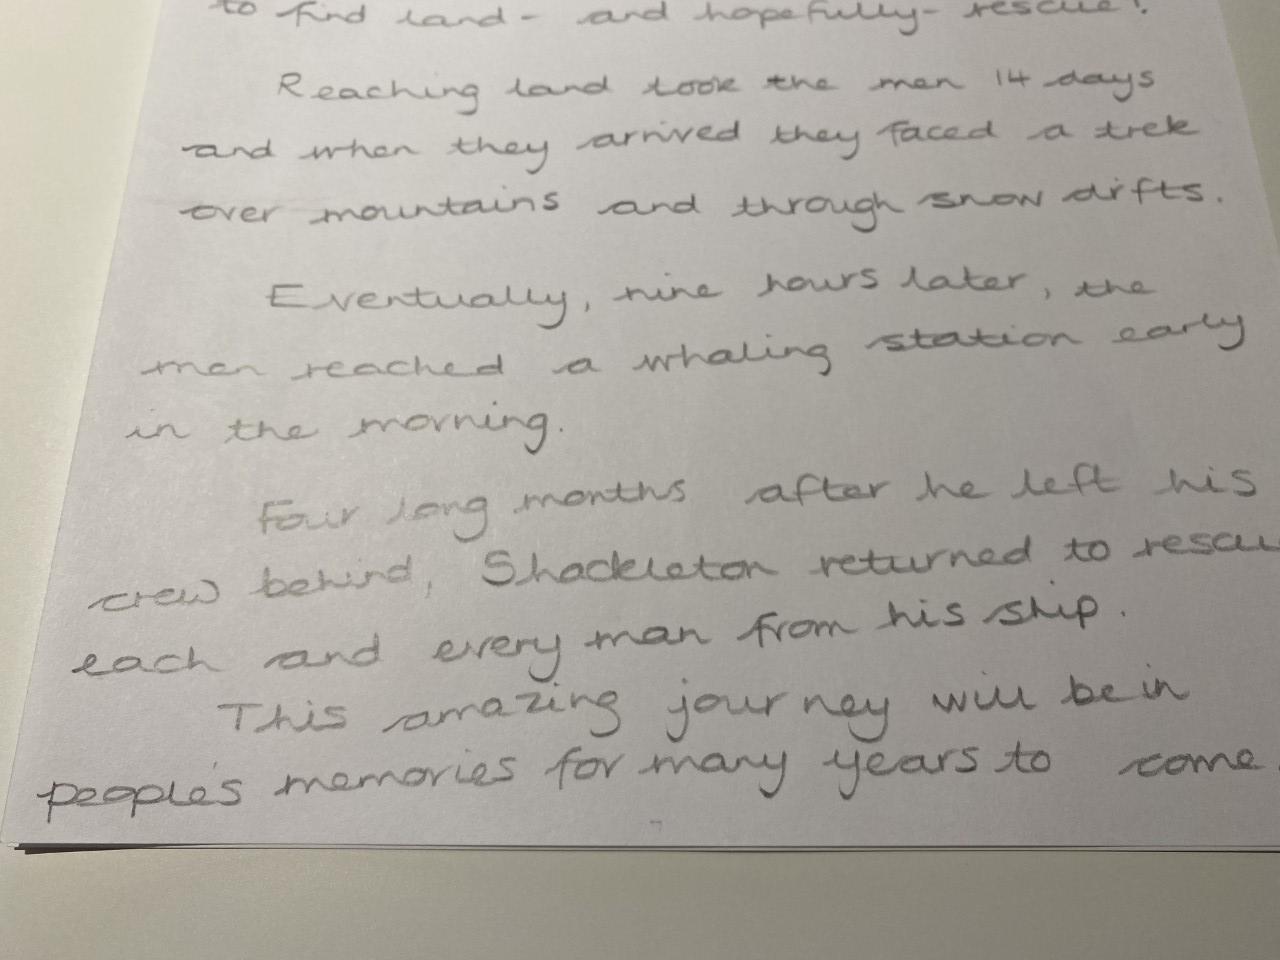 to find land - and hopefully - rescue!
Reaching land took the men 14 days
and when they arrived they faced a trek
over mountains and through snow drifts.
Eventually, nine hours later, the
men reached a whaling station early
in the morning.
Four long months after he left his
crew behind, Shackleton returned to rescu
each and every man from his ship.
This amazing journey will be in
people's memories for many years to come.